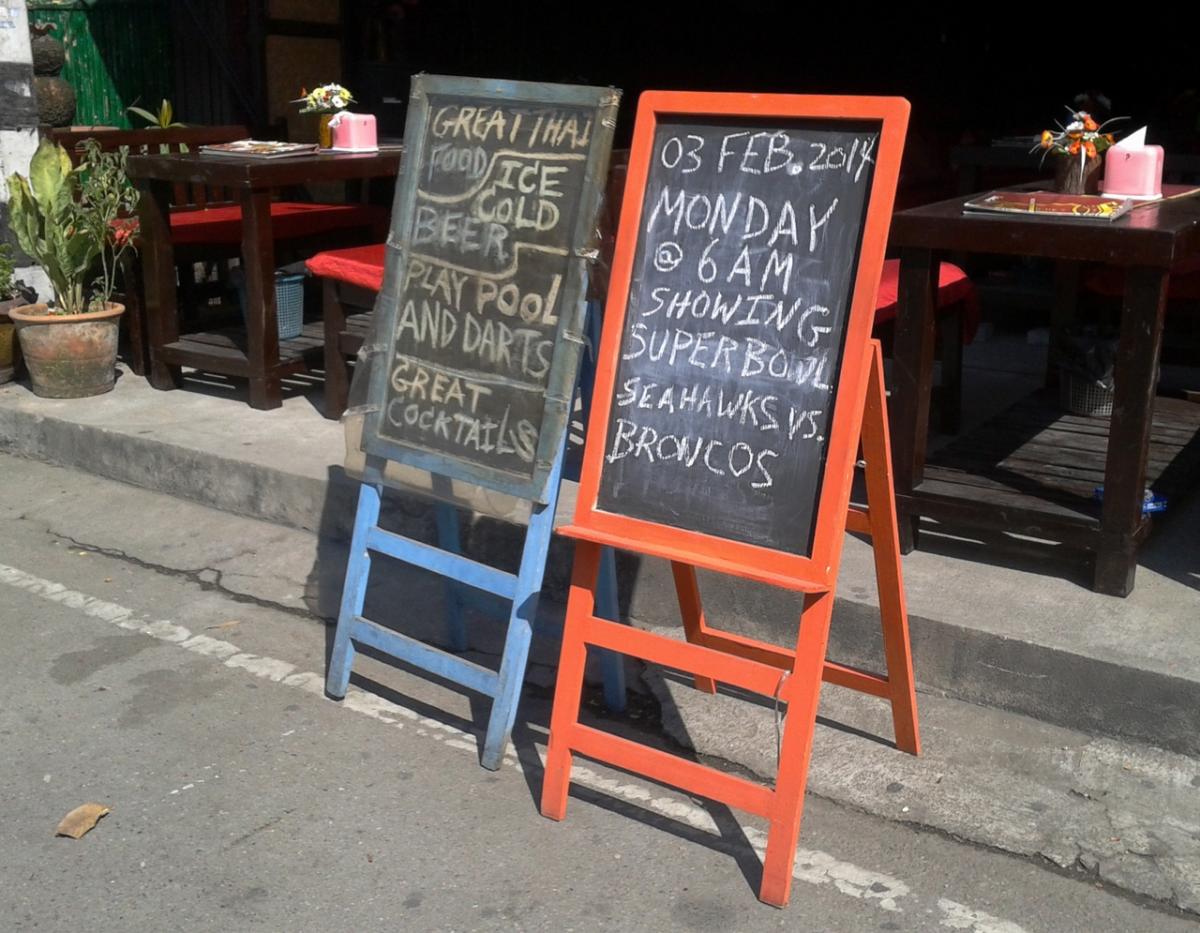 GREAT THAI
FOOD
ICE
COLD
BEER
PLAY POOL
AND DARTS
GREAT
COCKTAILS
03 FEB. 2014
MONDAY
@ 6 AM
SHOWING
SUPERBOWL
SEAHAWKS VS.
BRONCOS